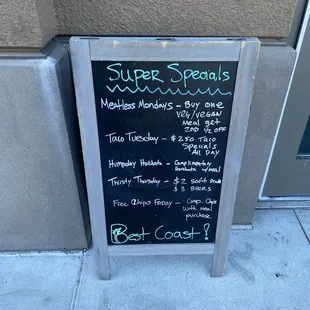 Super Specials
Meatless Mondays - Buy one
VEG/VEGAN
Meal get
2nd 1/2 OFF
Taco Tuesday - $2.50 Taco
Specials
All Day
Humpday Horchata - Complimentary
Horchata w/meal
Thirsty Thursday - $2 Soft Drinks
$3 BEERS
Free Chips Friday - Comp. Chips
with meal
purchase
Best Coast!